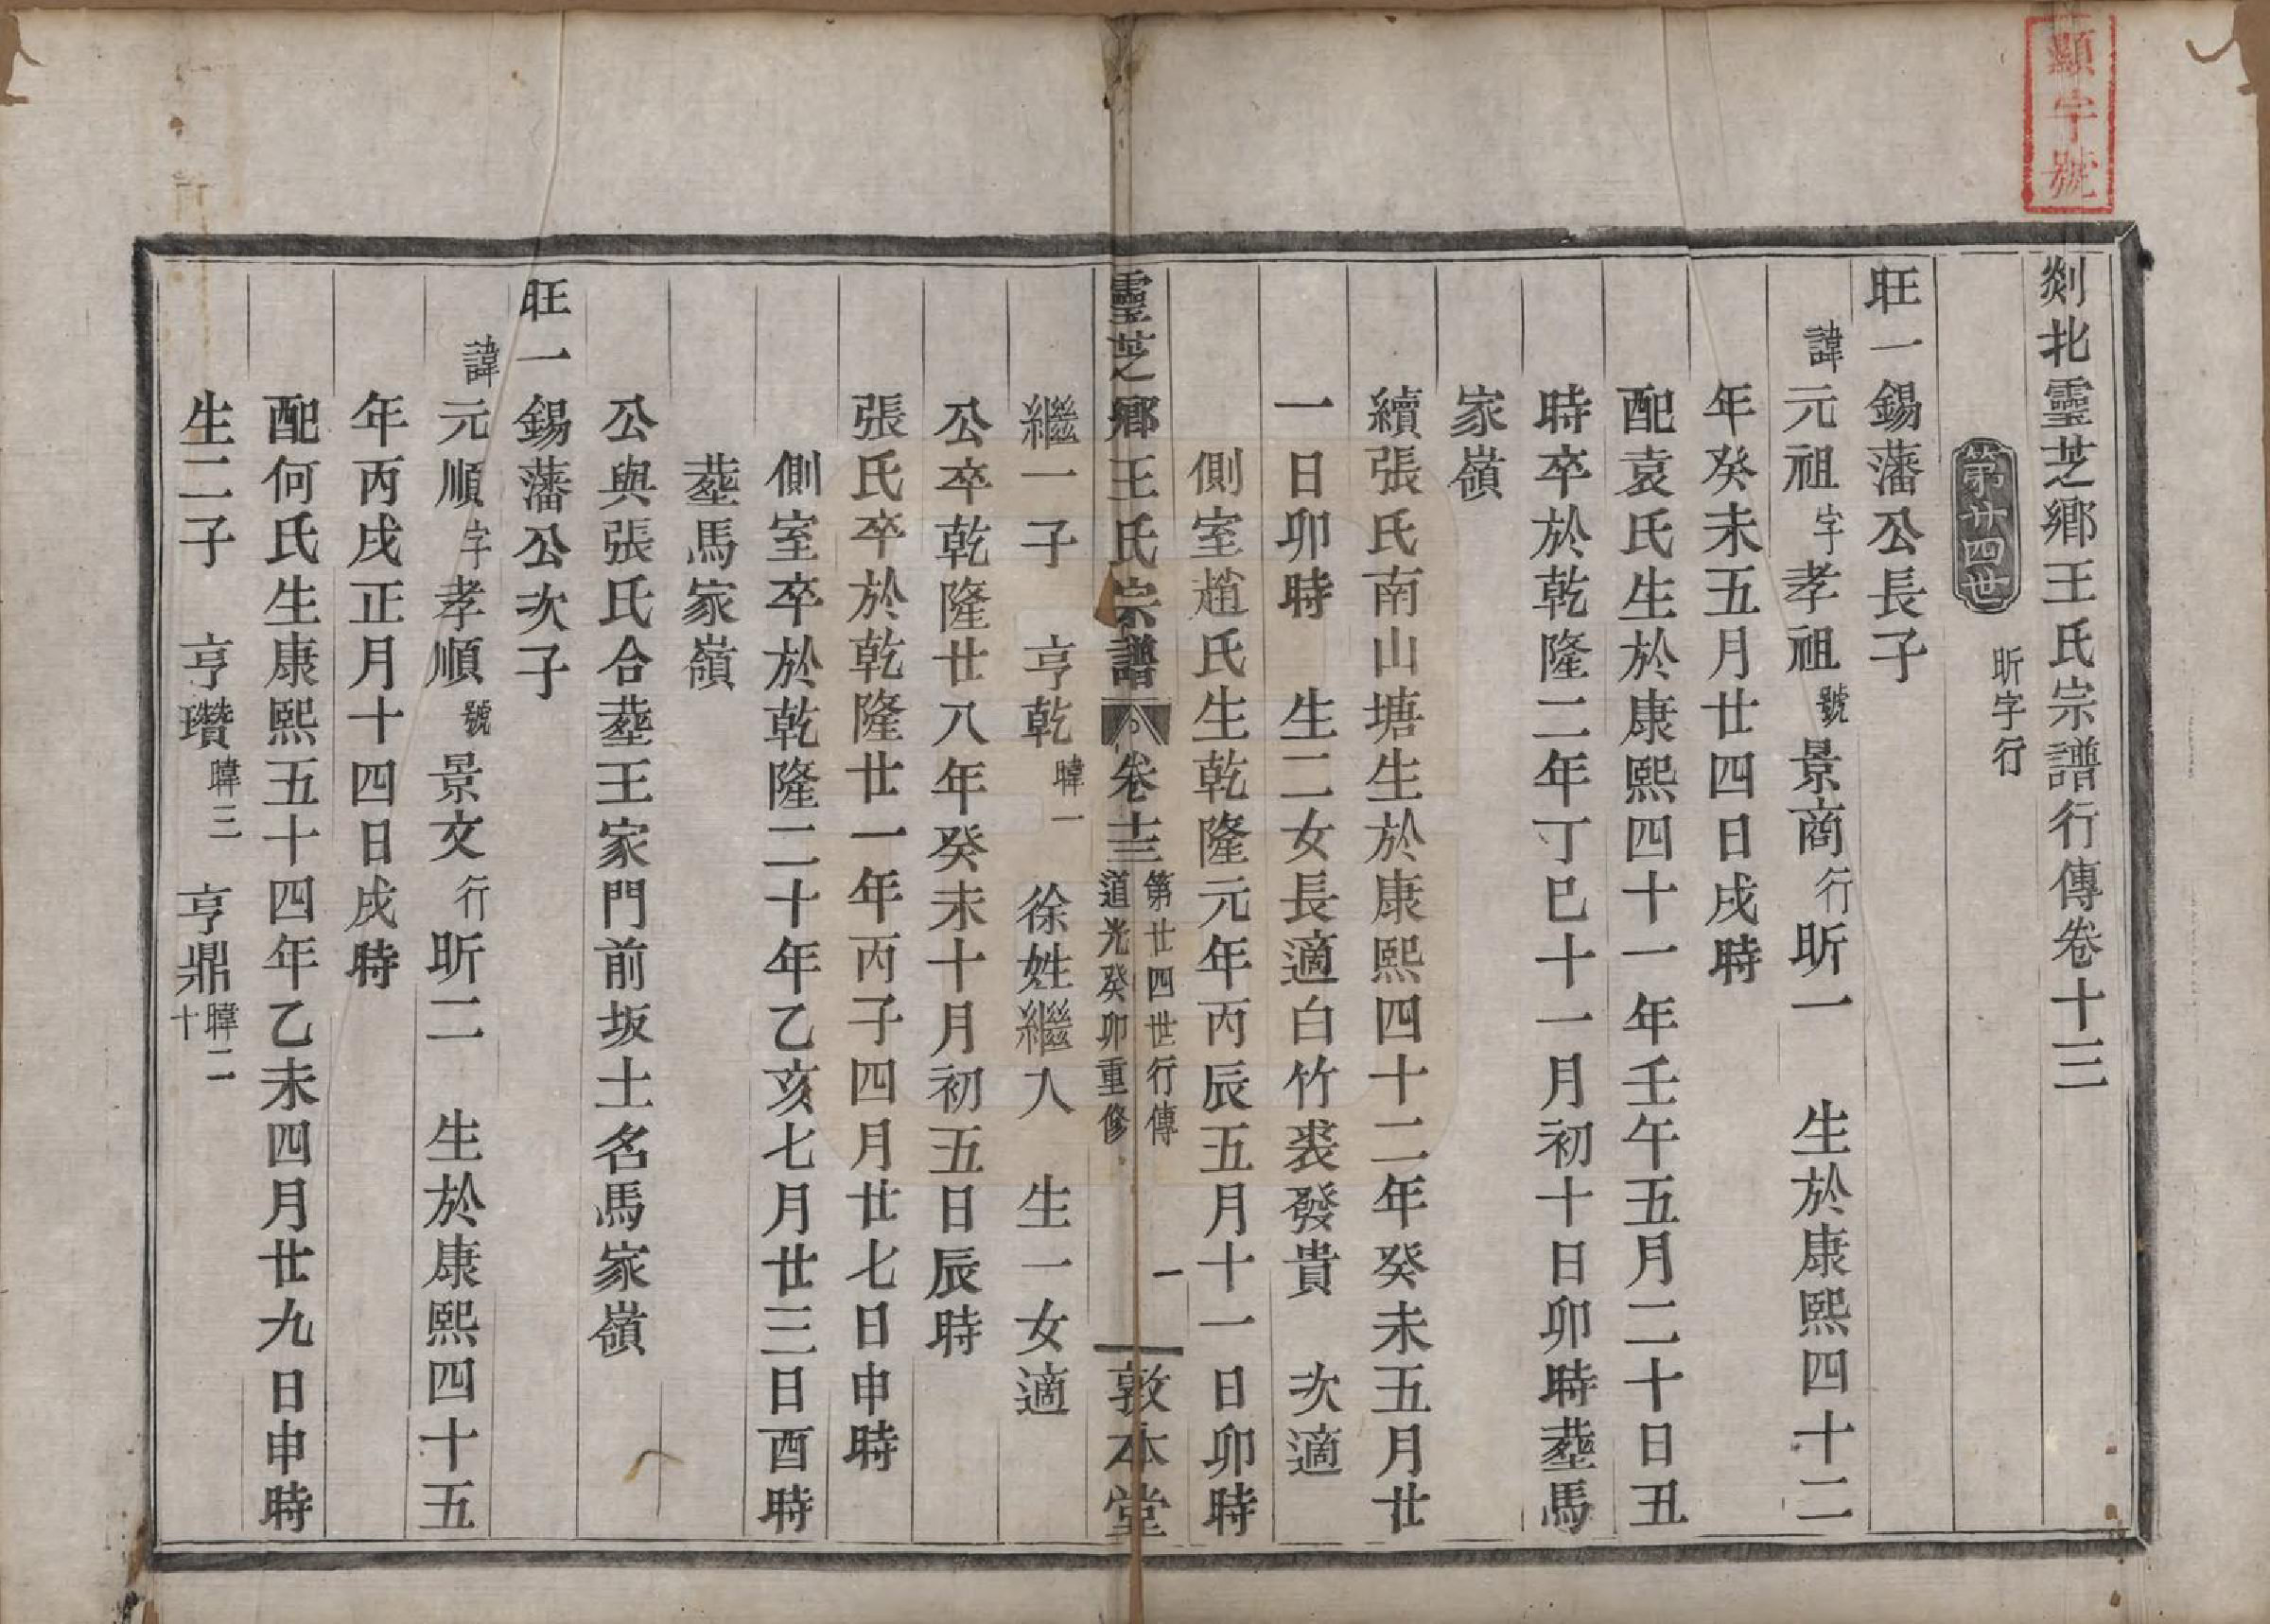 顯字號
剡北靈芝鄉王氏宗譜行傳卷十三
第廿四世 昕字行
旺一錫藩公長子
諱元祖字孝祖號景商行昕一 生於康熙四十二
年癸未五月廿四日戌時
配袁氏生於康熙四十一年壬午五月二十日丑
時卒於乾隆二年丁巳十一月初十日卯時塟馬
家嶺
續張氏南山塘生於康熙四十二年癸未五月廿
一日卯時 生二女長適白竹裘發貴 次適
側室趙氏生乾隆元年丙辰五月十一日卯時
靈芝鄉王氏宗譜 卷十三 第廿四世行傳 道光癸卯重修 一 敦本堂
繼一子 亨乾暐一 徐姓繼入 生一女適
公卒乾隆廿八年癸未十月初五日辰時
張氏卒於乾隆廿一年丙子四月廿七日申時
側室卒於乾隆二十年乙亥七月廿三日酉時
塟馬家嶺
公與張氏合塟王家門前坂土名馬家嶺
旺一錫藩公次子
諱元順字孝順號景文行昕二 生於康熙四十五
年丙戌正月十四日戌時
配何氏生康熙五十四年乙未四月廿九日申時
生二子 亨瓚暐三 亨鼎暐二十